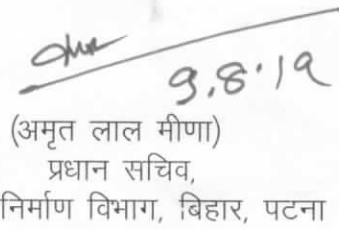 9.8.19
(अमृत लाल मीणा)
प्रधान सचिव,
निर्माण विभाग, बिहार, पटना